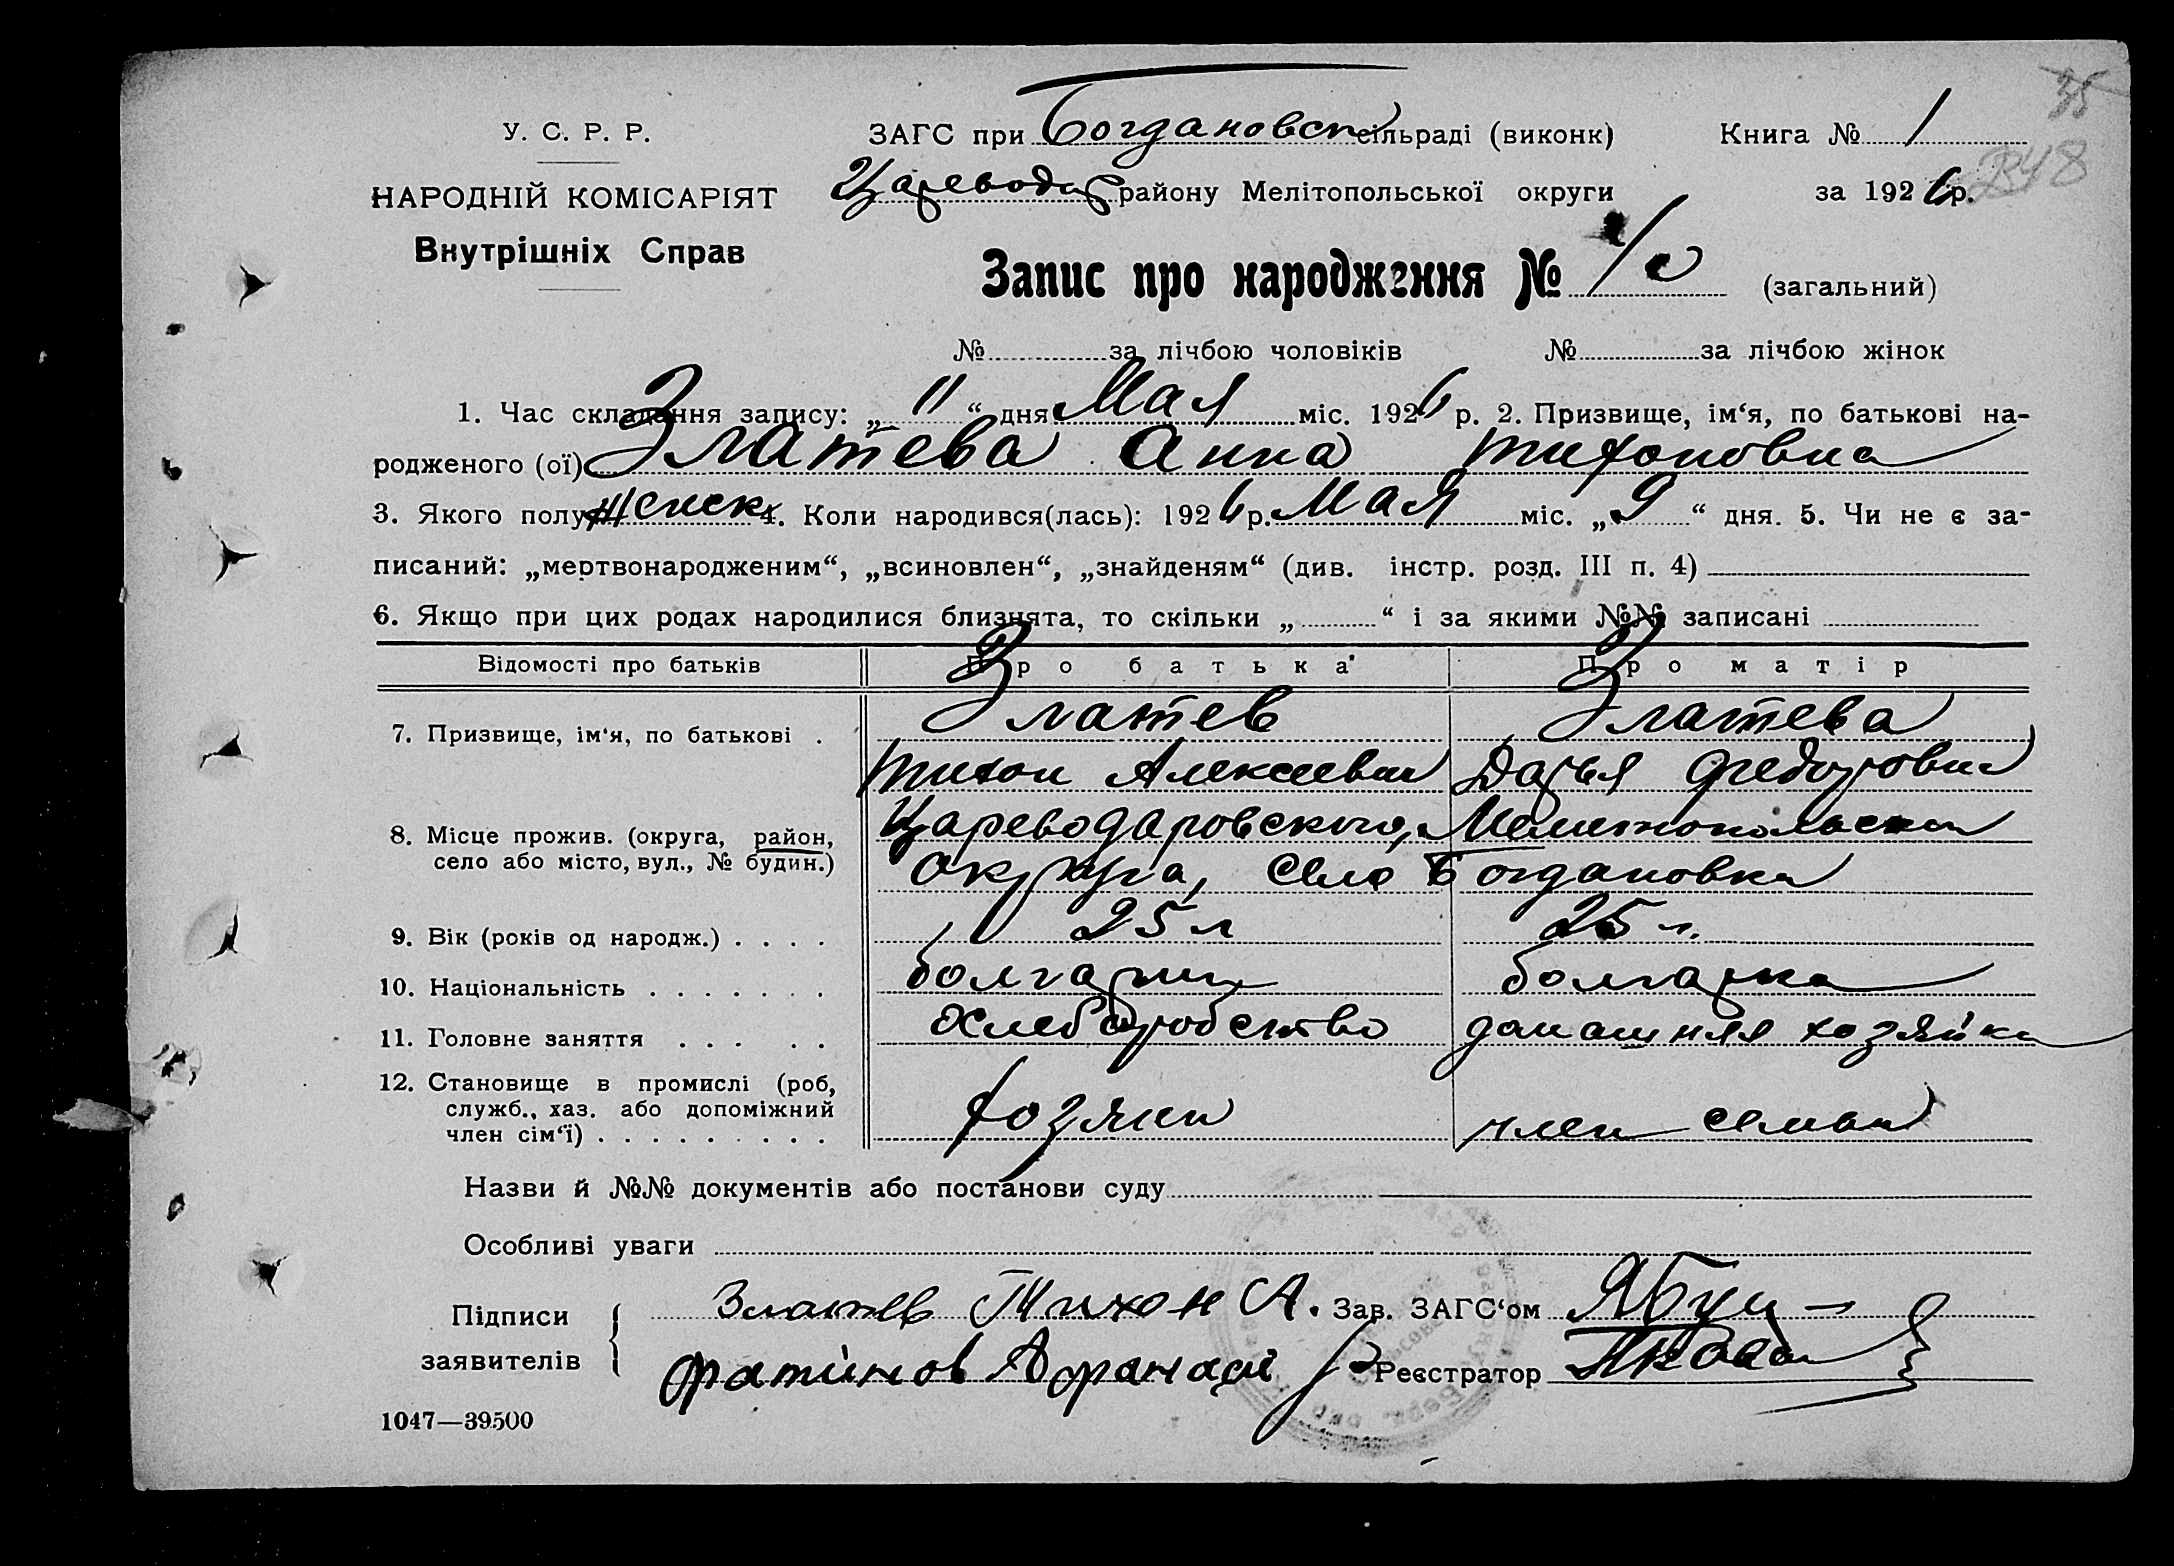 У. С. Р. Р.
НАРОДНІЙ КОМІСАРІЯТ
Внутрішніх Справ
ЗАГС при Богдановск сільраді (виконк)
Царевода р району Мелітопольської округи
Книга № 1
за 1926 р.
Запис про народження № 10 (загальний)
№ за лічбою чоловіків № за лічбою жінок
1. Час складання запису: „ 11 “ дня Мая міс. 1926 р. 2. Призвище, ім‘я, по батькові на-
родженого (ої) Златева Анна Тихоновна
3. Якого полу женск 4. Коли народився(лась): 1926 р. Мая міс. „ 9 “ дня. 5. Чи не є за-
писаний: „мертвонародженим“, „всиновлен“, „знайденям“ (див. інстр. розд. III п. 4)
6. Якщо при цих родах народилися близнята, то скільки „ “ і за якими №№ записані
Відомості про батьків Про батька Про матір
7. Призвище, ім‘я, по батькові . Златев Златева
Тихон Алексеевич Дарья Федоровна
8. Місце прожив. (округа, район, Цареводаровского, Мелитопольская
село або місто, вул., № будин.) округа, село Богдановка
9. Вік (років од народж.) . . . . 25 л 25 л.
10. Національність . . . . . . . болгарин болгарка
11. Головне заняття . . . . . Хлеборобство домашняя хозяйка
12. Становище в промислі (роб,
служб., хаз. або допоміжний
член сім‘ї) . . . . . . . . . хозяин член семьи
Назви й №№ документів або постанови суду
Особливі уваги
Підписи
заявителів
Златев Тихон А. Зав. ЗАГС‘ом
Фатинов Афанасі Реєстратор
1047—39500